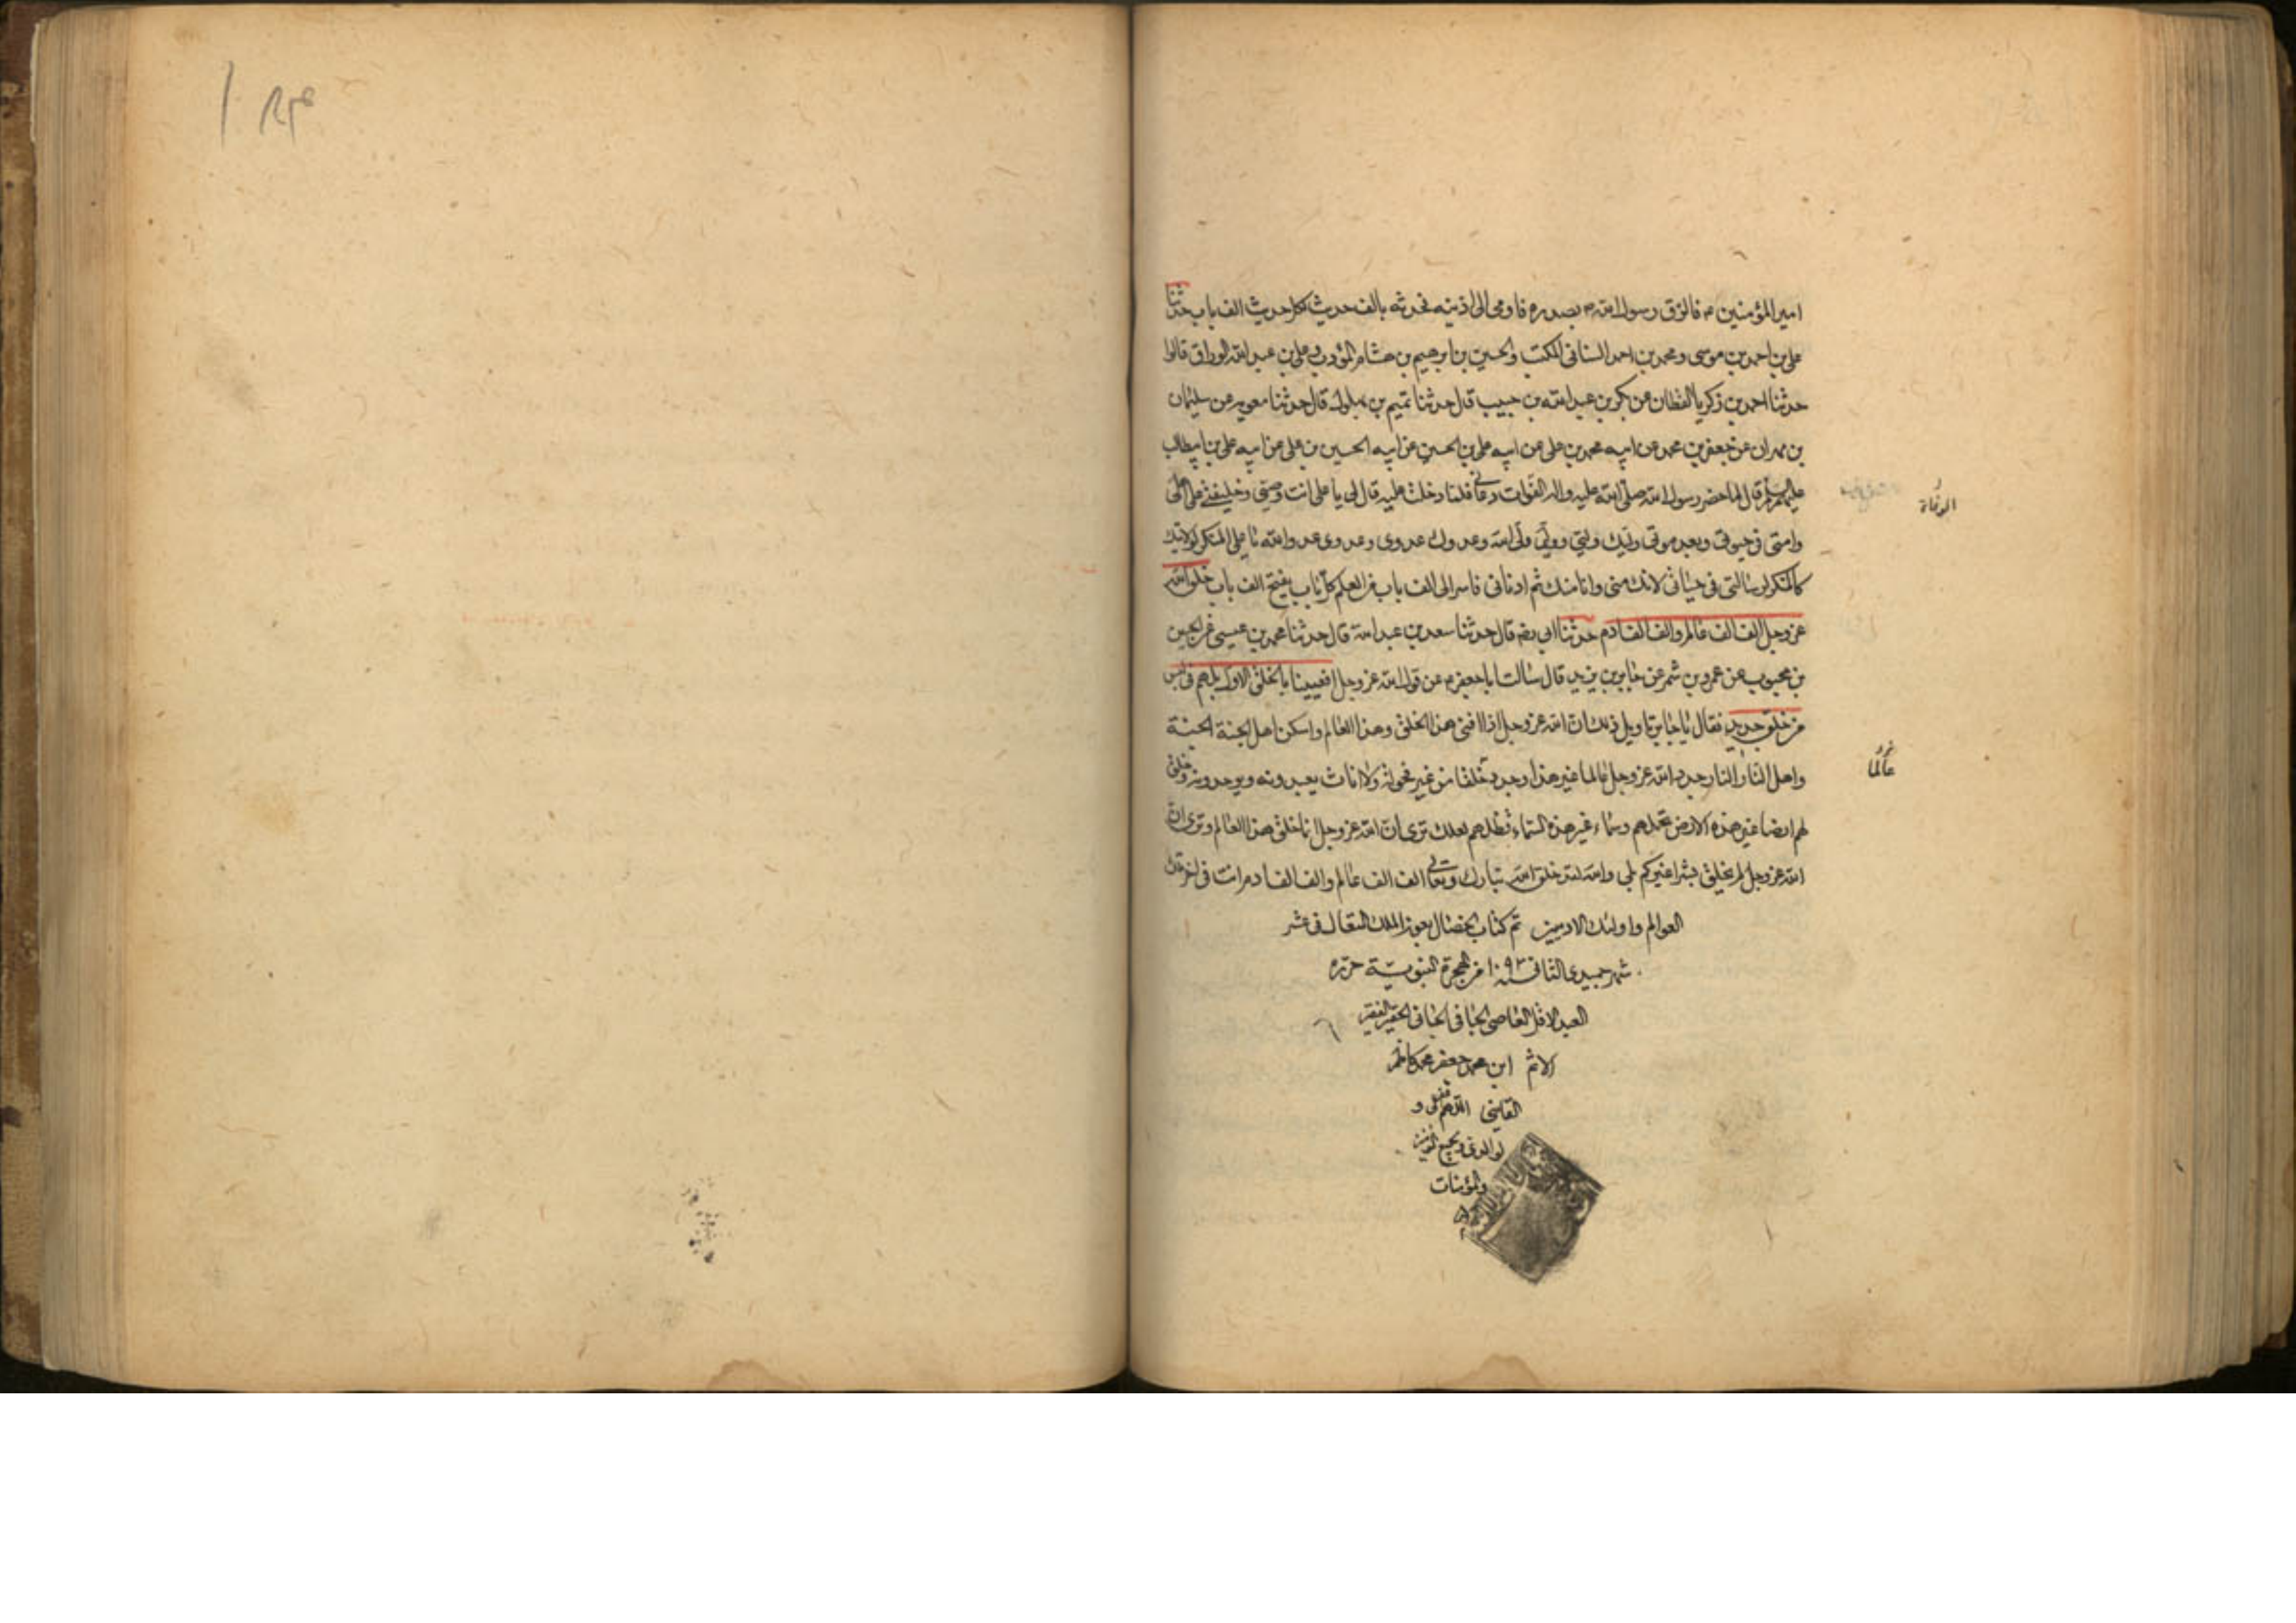 امير المؤمنين م فالزق رسول الله ص بصدره فاومى الى اذنيه فحدثه بالف حديث لكل حديث الف باب حدثنا
على بن احمد بن موسى ومحمد بن احمد السنانى المكتب والحسين بن ابرهيم بن هشام المؤدب وعلى بن عبد الله الوراق قالوا
حدثنا احمد بن زكريا القطان عن بكر بن عبد الله بن حبيب قال حدثنا تميم بن بهلول قال حدثنا معويه عن سليمان
بن مهران عن جعفر بن محمد عن ابيه محمد بن على عن ابيه على بن الحسين عن ابيه الحسين بن على عن ابيه على بن ابيطالب
عليهم السلم قال لما حضر رسول الله صلى الله عليه واله الفوات دعانى فلما دخلت عليه قال لى يا على انت وصيى وخليفتى على اهلى
وامتى فى حيوتى وبعد موتى وليك وليى ووليى ولى الله وعدوك عدوى وعدوى عدو الله يا على المنكر لولايتك
كالمنكر لرسالتى فى حياتى لانك منى وانا منك ثم ادنانى فاسر الى الف باب من العلم كل باب يفتح الف باب خلق الله
عز وجل الف الف عالم والف الف ادم حدثنا ابى رضه قال حدثنا سعد بن عبد الله قال حدثنا محمد بن عيسى عن الحسن
بن محبوب عن عمرو بن شمر عن جابر بن يزيد قال سالت ابا جعفر م عن قول الله عز وجل افعيينا بالخلق الاول بل هم فى لبس
من خلق جديد فقال يا جابر تاويل ذلك ان الله عز وجل اذا افنى هذا الخلق وهذا العالم واسكن اهل الجنة الجنة
واهل النار النار جدد الله عز وجل عالما غير هذا وجدد خلقا من غير فحولة ولا اناث يعبدونه ويوحدونه وخلق
لهم ارضا غير هذه الارض تحملهم وسماء غير هذه السماء تظلهم لعلك ترى ان الله عز وجل انما خلق هذا العالم وترى ان
الله عز وجل لم يخلق بشرا غيركم بلى والله لقد خلق الله تبارك وتعالى الف الف عالم والف الف ادم انت فى اخر تلك
العوالم واولئك الادميين تم كتاب الخصال بعون الملك المتعال فى عشر
شهر جميدى الثانى سنه ١٠٩٣ من الهجرة النبوية حرره
العبد الاقل العاصى الجافى الجانى الحقير الفقير
الاثم ابن محمد جعفر محمد كاظم
القاينى اللهم اغفر لى و
لوالدى ولجميع المؤمنين
والمؤمنات
الوفاة
عالما